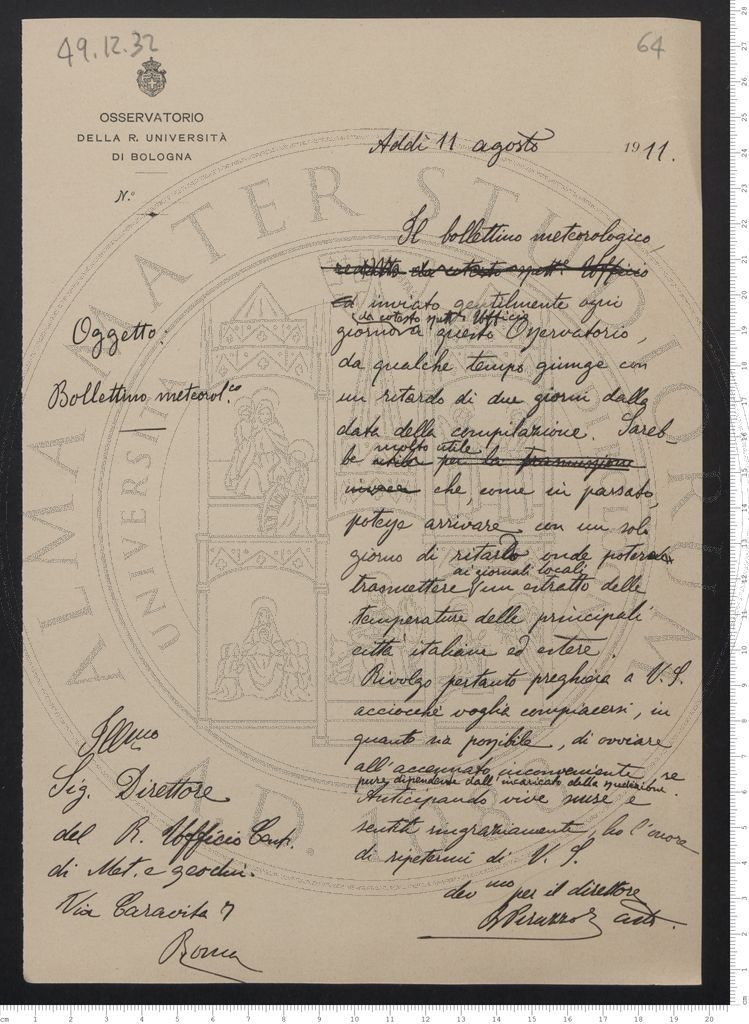 49.12.32
64
OSSERVATORIO
DELLA R. UNIVERSITÀ
DI BOLOGNA
N.º
Addì 11 agosto 1911.
Oggetto:
Bollettino meteorol.co
Il bollettino meteorologico,
redatto da cotesto spett.e Ufficio
ed inviato gentilmente ogni
da cotesto spett.e Ufficio
giorno a questo Osservatorio,
da qualche tempo giunge con
un ritardo di due giorni dalla
data della compilazione. Sareb
molto utile
be utile per la trasmissione
invece che, come in passato,
potesse arrivare con un sol
giorno di ritardo onde poter
ai giornali locali
trasmettere un estratto delle
temperature delle principali
città italiane ed estere.
Rivolgo pertanto preghiera a V. S.
acciocché voglia compiacersi, in
quanto sia possibile, di ovviare
all'accennato inconveniente, se
pure dipendente dall'incaricato della spedizione.
Anticipando vive scuse e
sentiti ringraziamenti, ho l'onore
di ripetermi di V. S.
dev.mo per il direttore
Illmo
Sig. Direttore
del R. Ufficio Cent.
di Met. e geodin.
Via Caravita 7
Roma
ALMA MATER STUDIORUM
UNIVERSITÀ
A.D. 1088